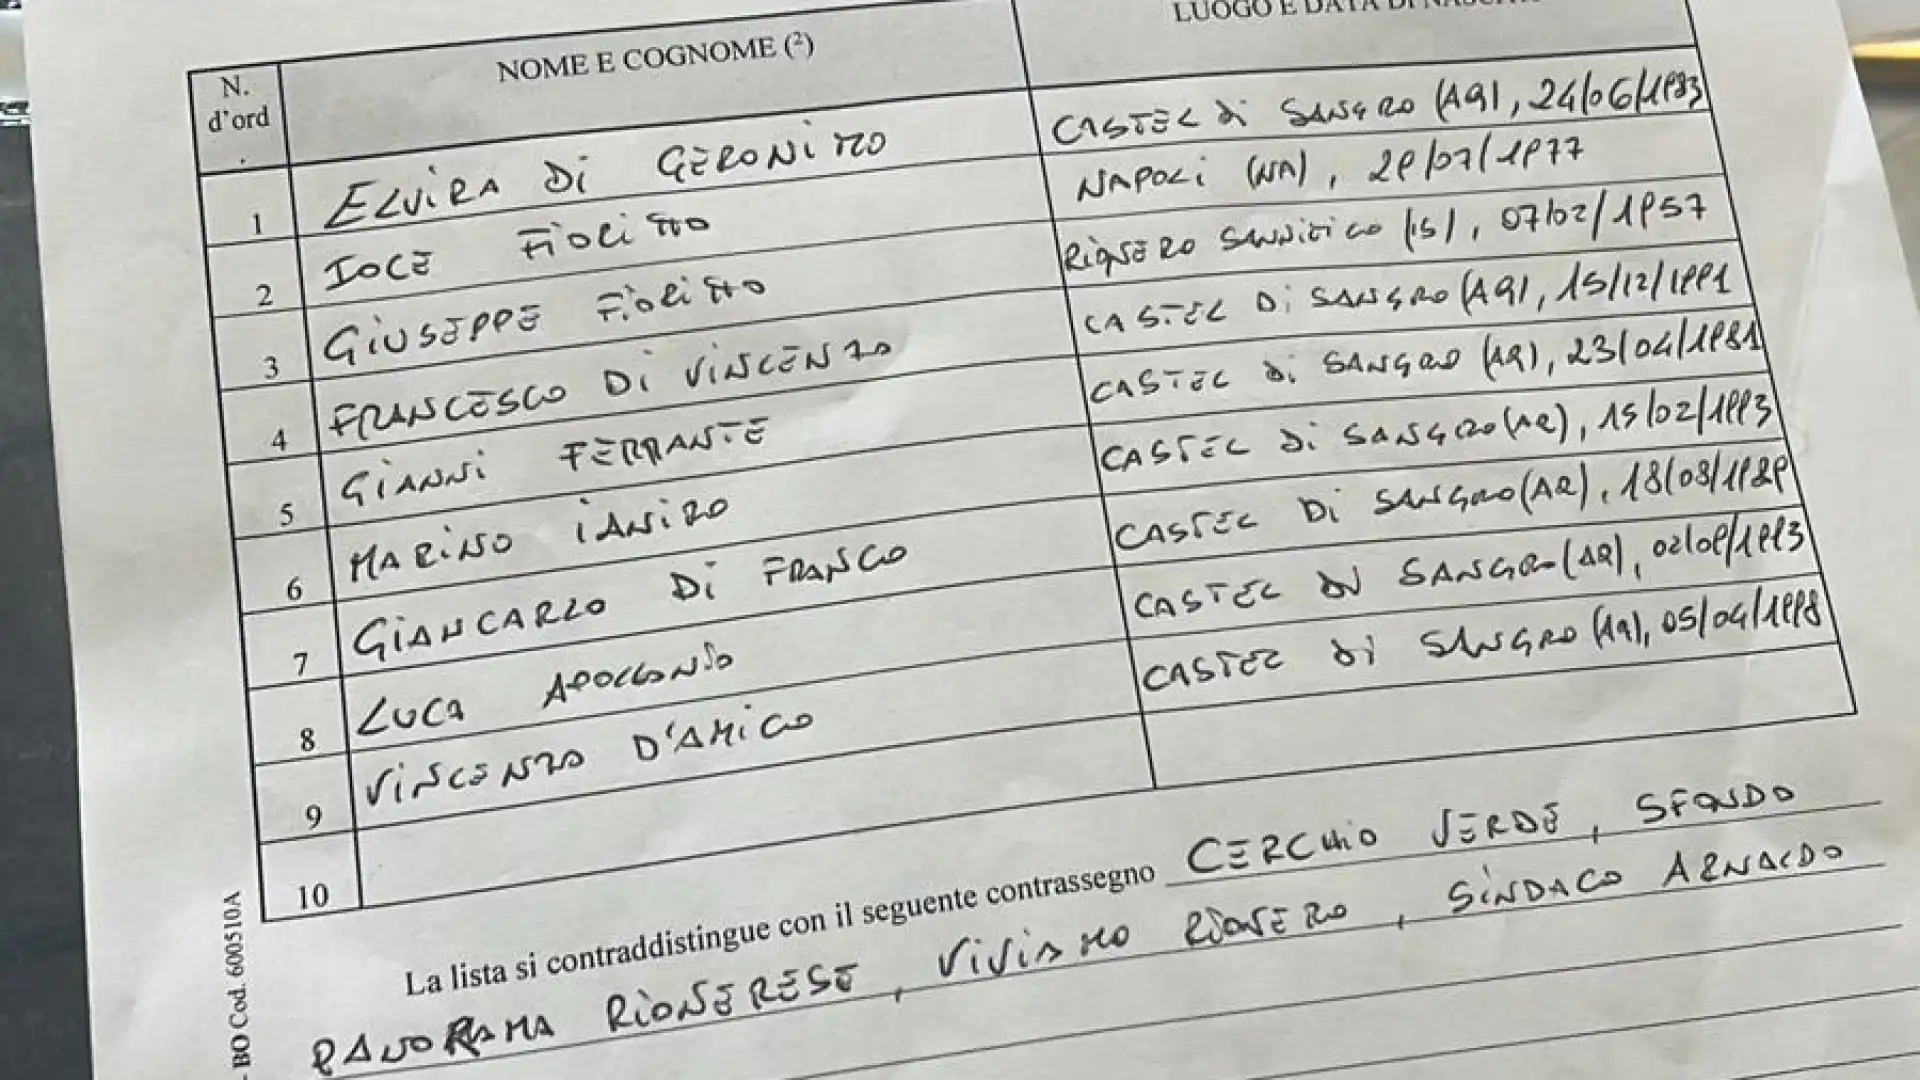 LUOGO E DATA DI NASCITA
N. d'ord. NOME E COGNOME (²)
1 ELVIRA DI GERONIMO CASTEL DI SANGRO (AQ), 24/06/1983
2 IOCE FIOLITTO NAPOLI (NA), 29/07/1977
3 GIUSEPPE FIOLITTO RIONERO SANNITICO (IS), 07/02/1957
4 FRANCESCO DI VINCENZO CASTEL DI SANGRO (AQ), 15/12/1991
5 GIANNI FERRANTE CASTEL DI SANGRO (AQ), 23/04/1981
6 MARINO IANIRO CASTEL DI SANGRO (AQ), 15/02/1993
7 GIANCARLO DI FRANCO CASTEL DI SANGRO (AQ), 18/08/1989
8 LUCA APOLLONIO CASTEL DI SANGRO (AQ), 02/09/1993
9 VINCENZO D'AMICO CASTEL DI SANGRO (AQ), 05/04/1998
10
La lista si contraddistingue con il seguente contrassegno CERCHIO VERDE, SFONDO
PANORAMA RIONERESE, VIVIAMO RIONERO, SINDACO ARNALDO
BO Cod. 600510A